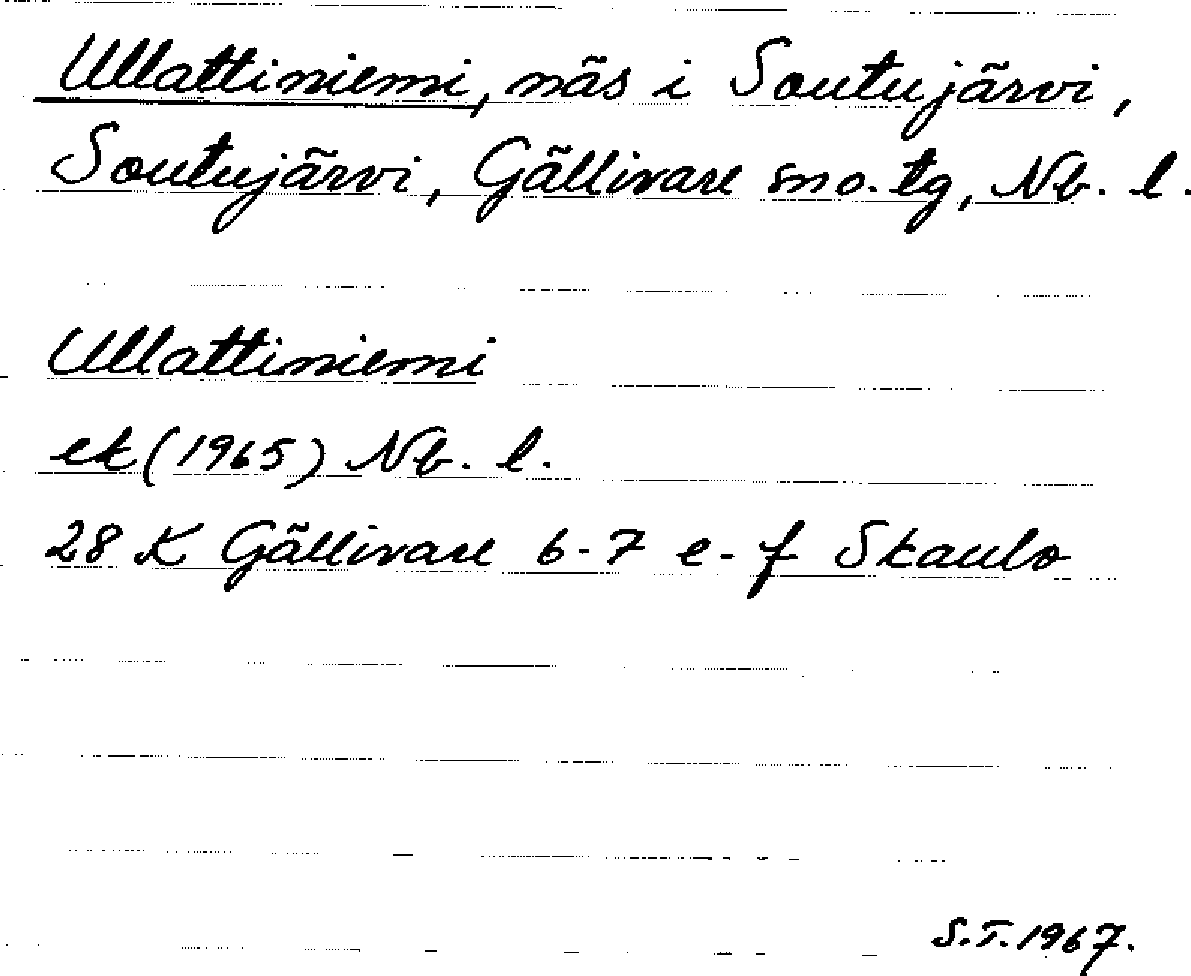 Ullattiniemi, näs i Soutujärvi,
Soutujärvi, Gällivare sno. tg, Nb. l.
Ullattiniemi
ek (1965) Nb. l.
28 K Gällivare 6-7 e-f Skaulo
S.T. 1967.